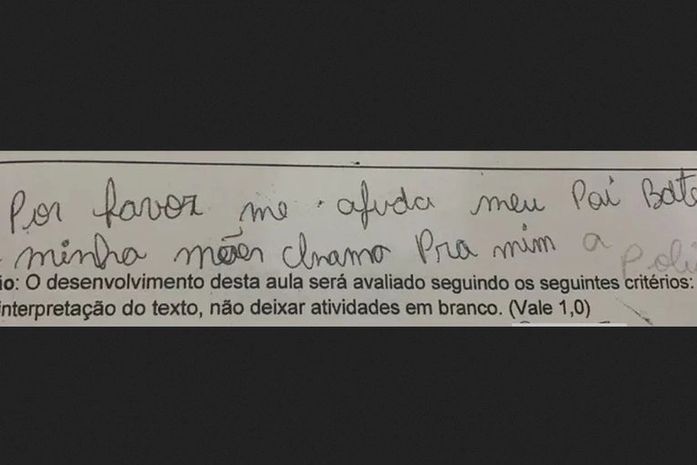 Por favor me ajuda meu Pai Bate
minha mãer chama Pra mim a Poli
io: O desenvolvimento desta aula será avaliado seguindo os seguintes critérios:
interpretação do texto, não deixar atividades em branco. (Vale 1,0)